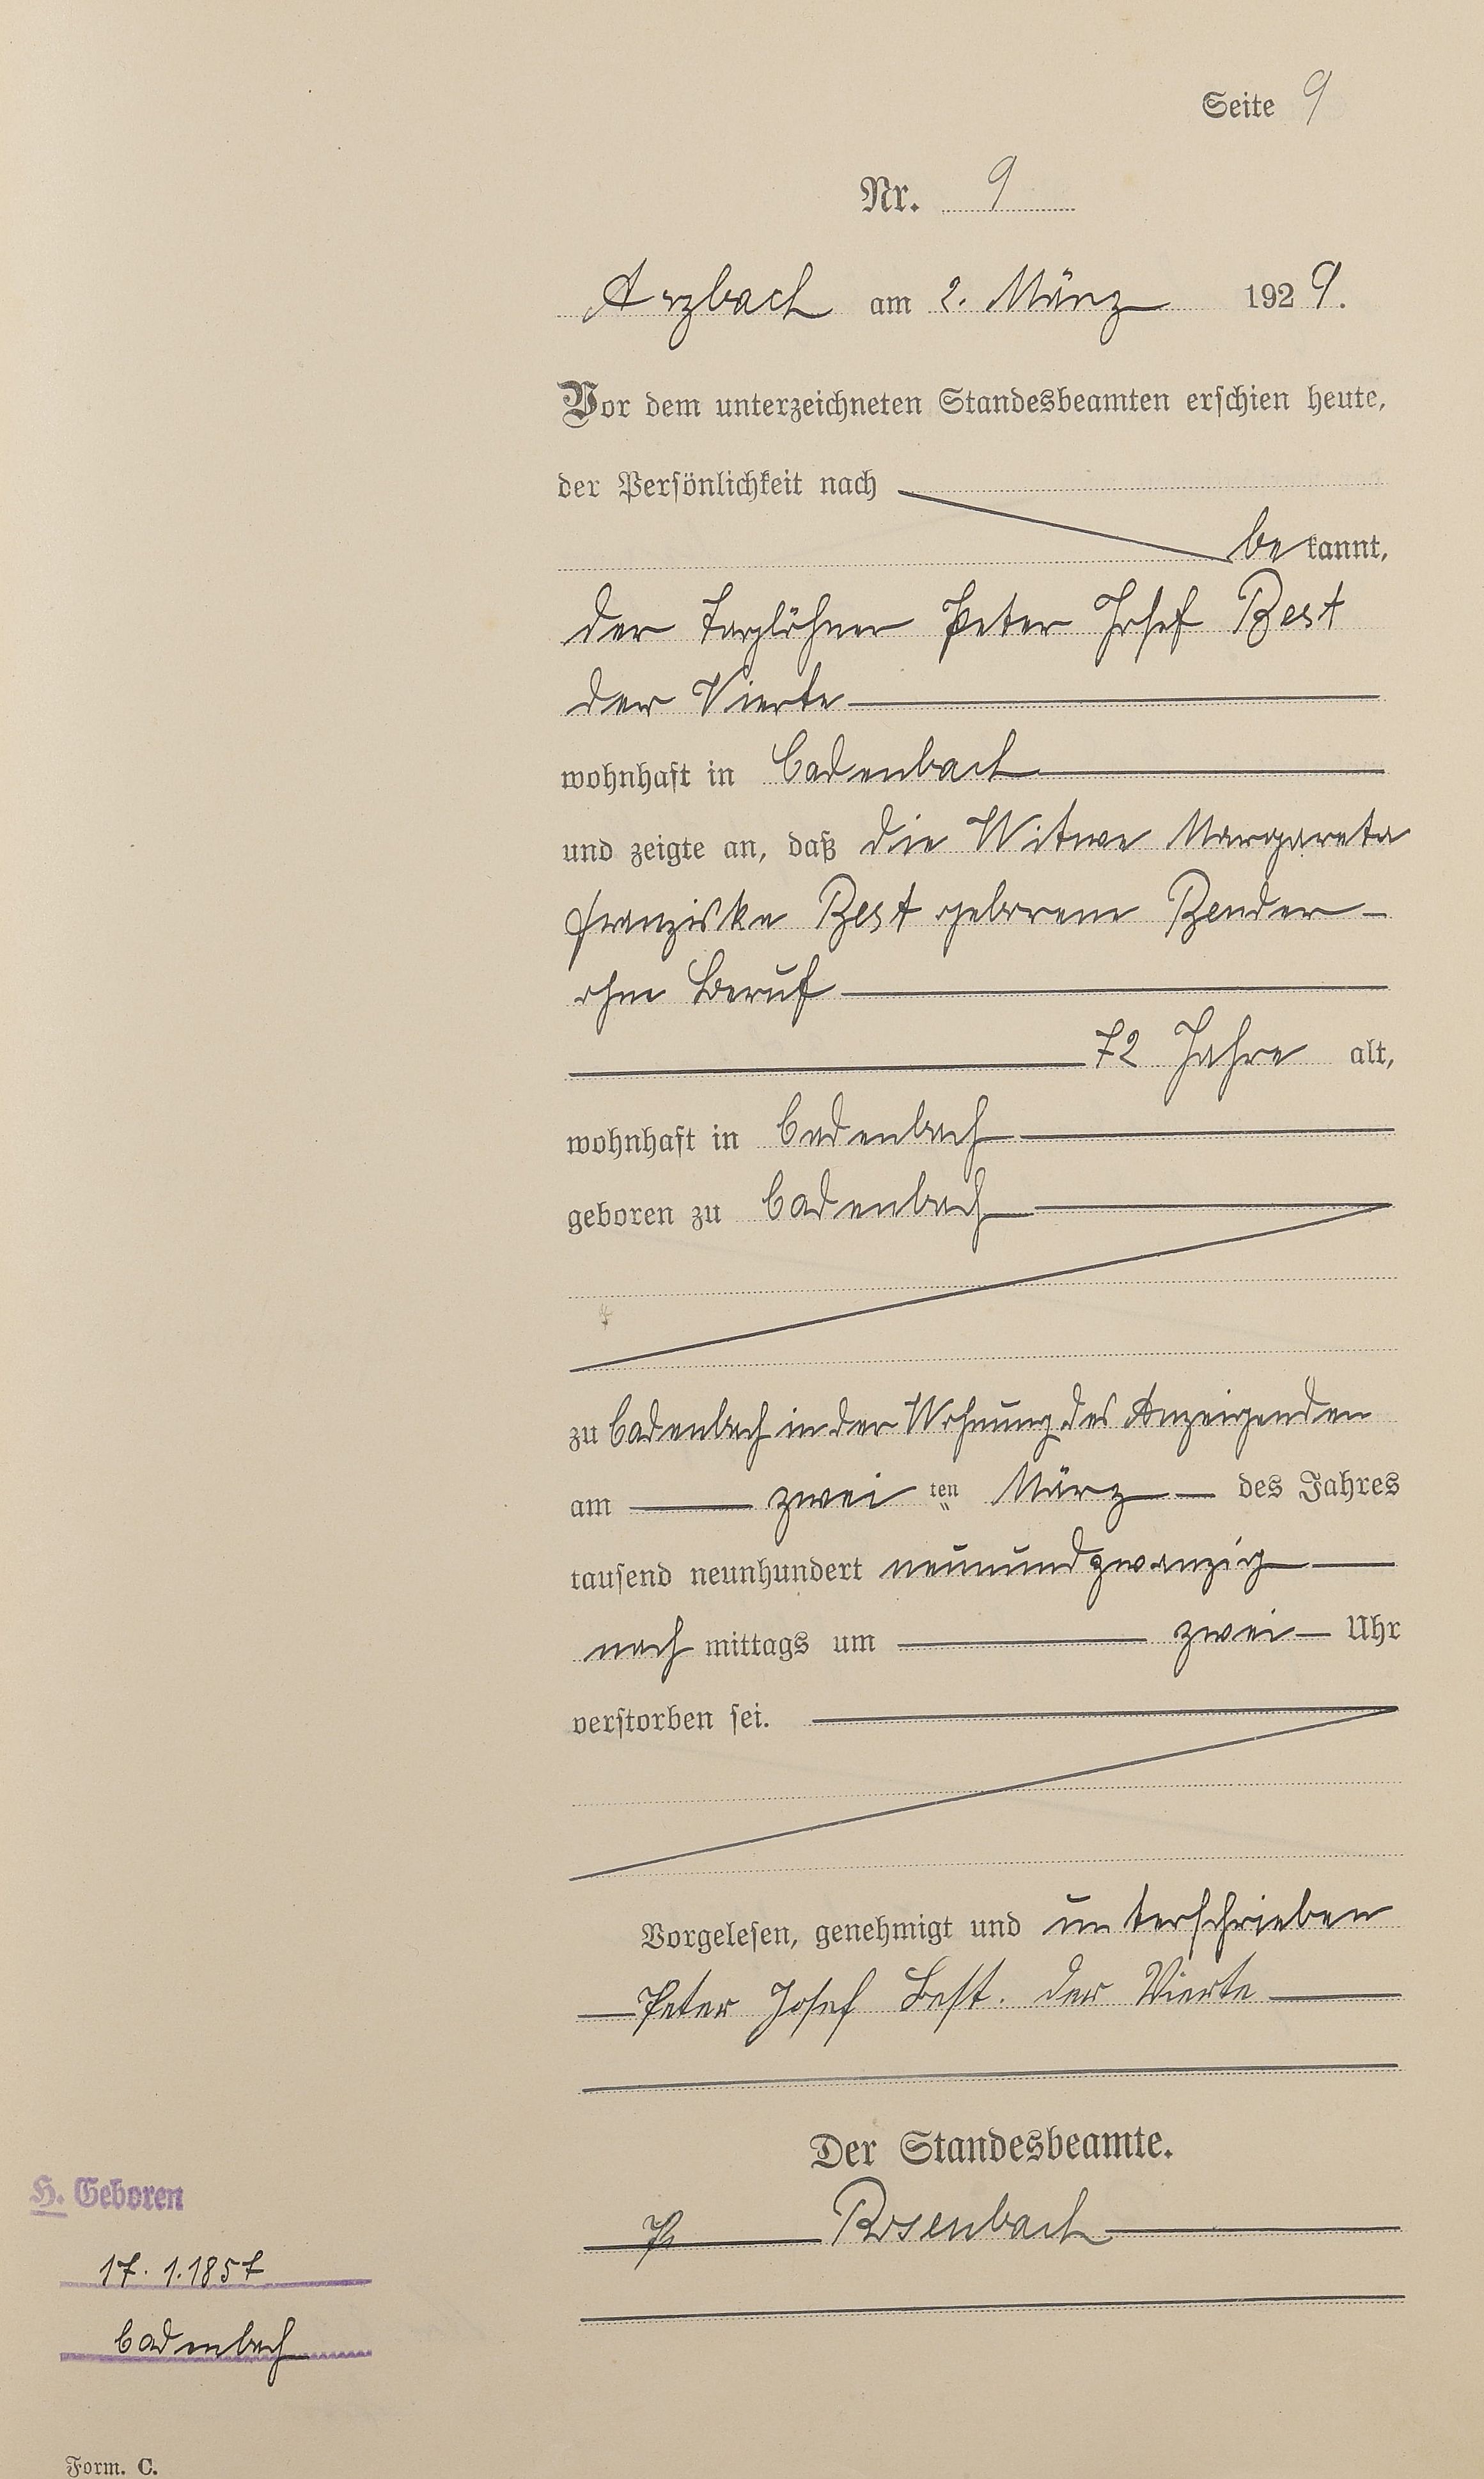 Seite 9
Nr. 9
Arzbach am 2. März 1929.
Vor dem unterzeichneten Standesbeamten erschien heute,
der Persönlichkeit nach
bekannt,
der Taglöhner Peter Josef Best
der Vierte
wohnhaft in Cadenbach
und zeigte an, daß die Witwe Margareta
Franziska Best geborene Bender
ohne Beruf
72 Jahre alt,
wohnhaft in Cadenbach
geboren zu Cadenbach
zu Cadenbach in der Wohnung des Anzeigenden
am zwei ten März des Jahres
tausend neunhundert neunundzwanzig
nach mittags um zwei Uhr
verstorben sei.
Vorgelesen, genehmigt und unterschrieben
Peter Josef Best. der Vierte
Der Standesbeamte.
Rosenbach
H. Geboren
17. 1. 1857
Cadenbach
Form. C.